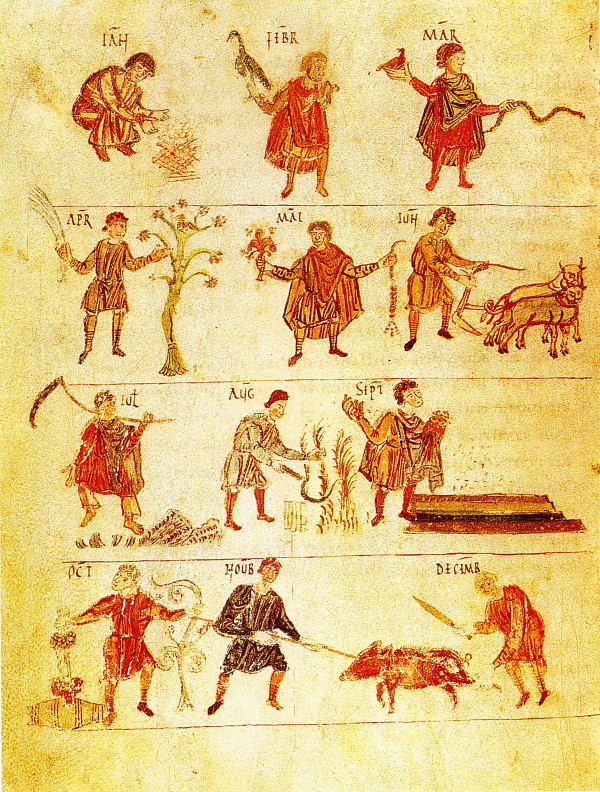 IAN FEBR MAR
APR MAI IUN
IUL AUG SEPT
OCT NOUB DECEMB